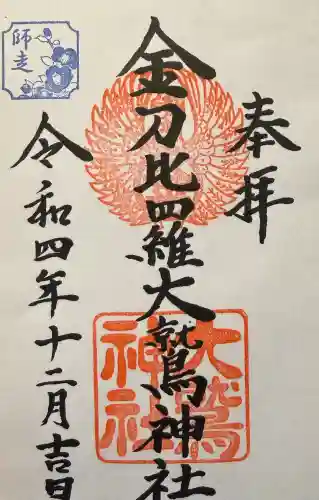 奉拝
金刀比羅大鷲神社
令和四年十二月吉日
師走
大鷲
神社